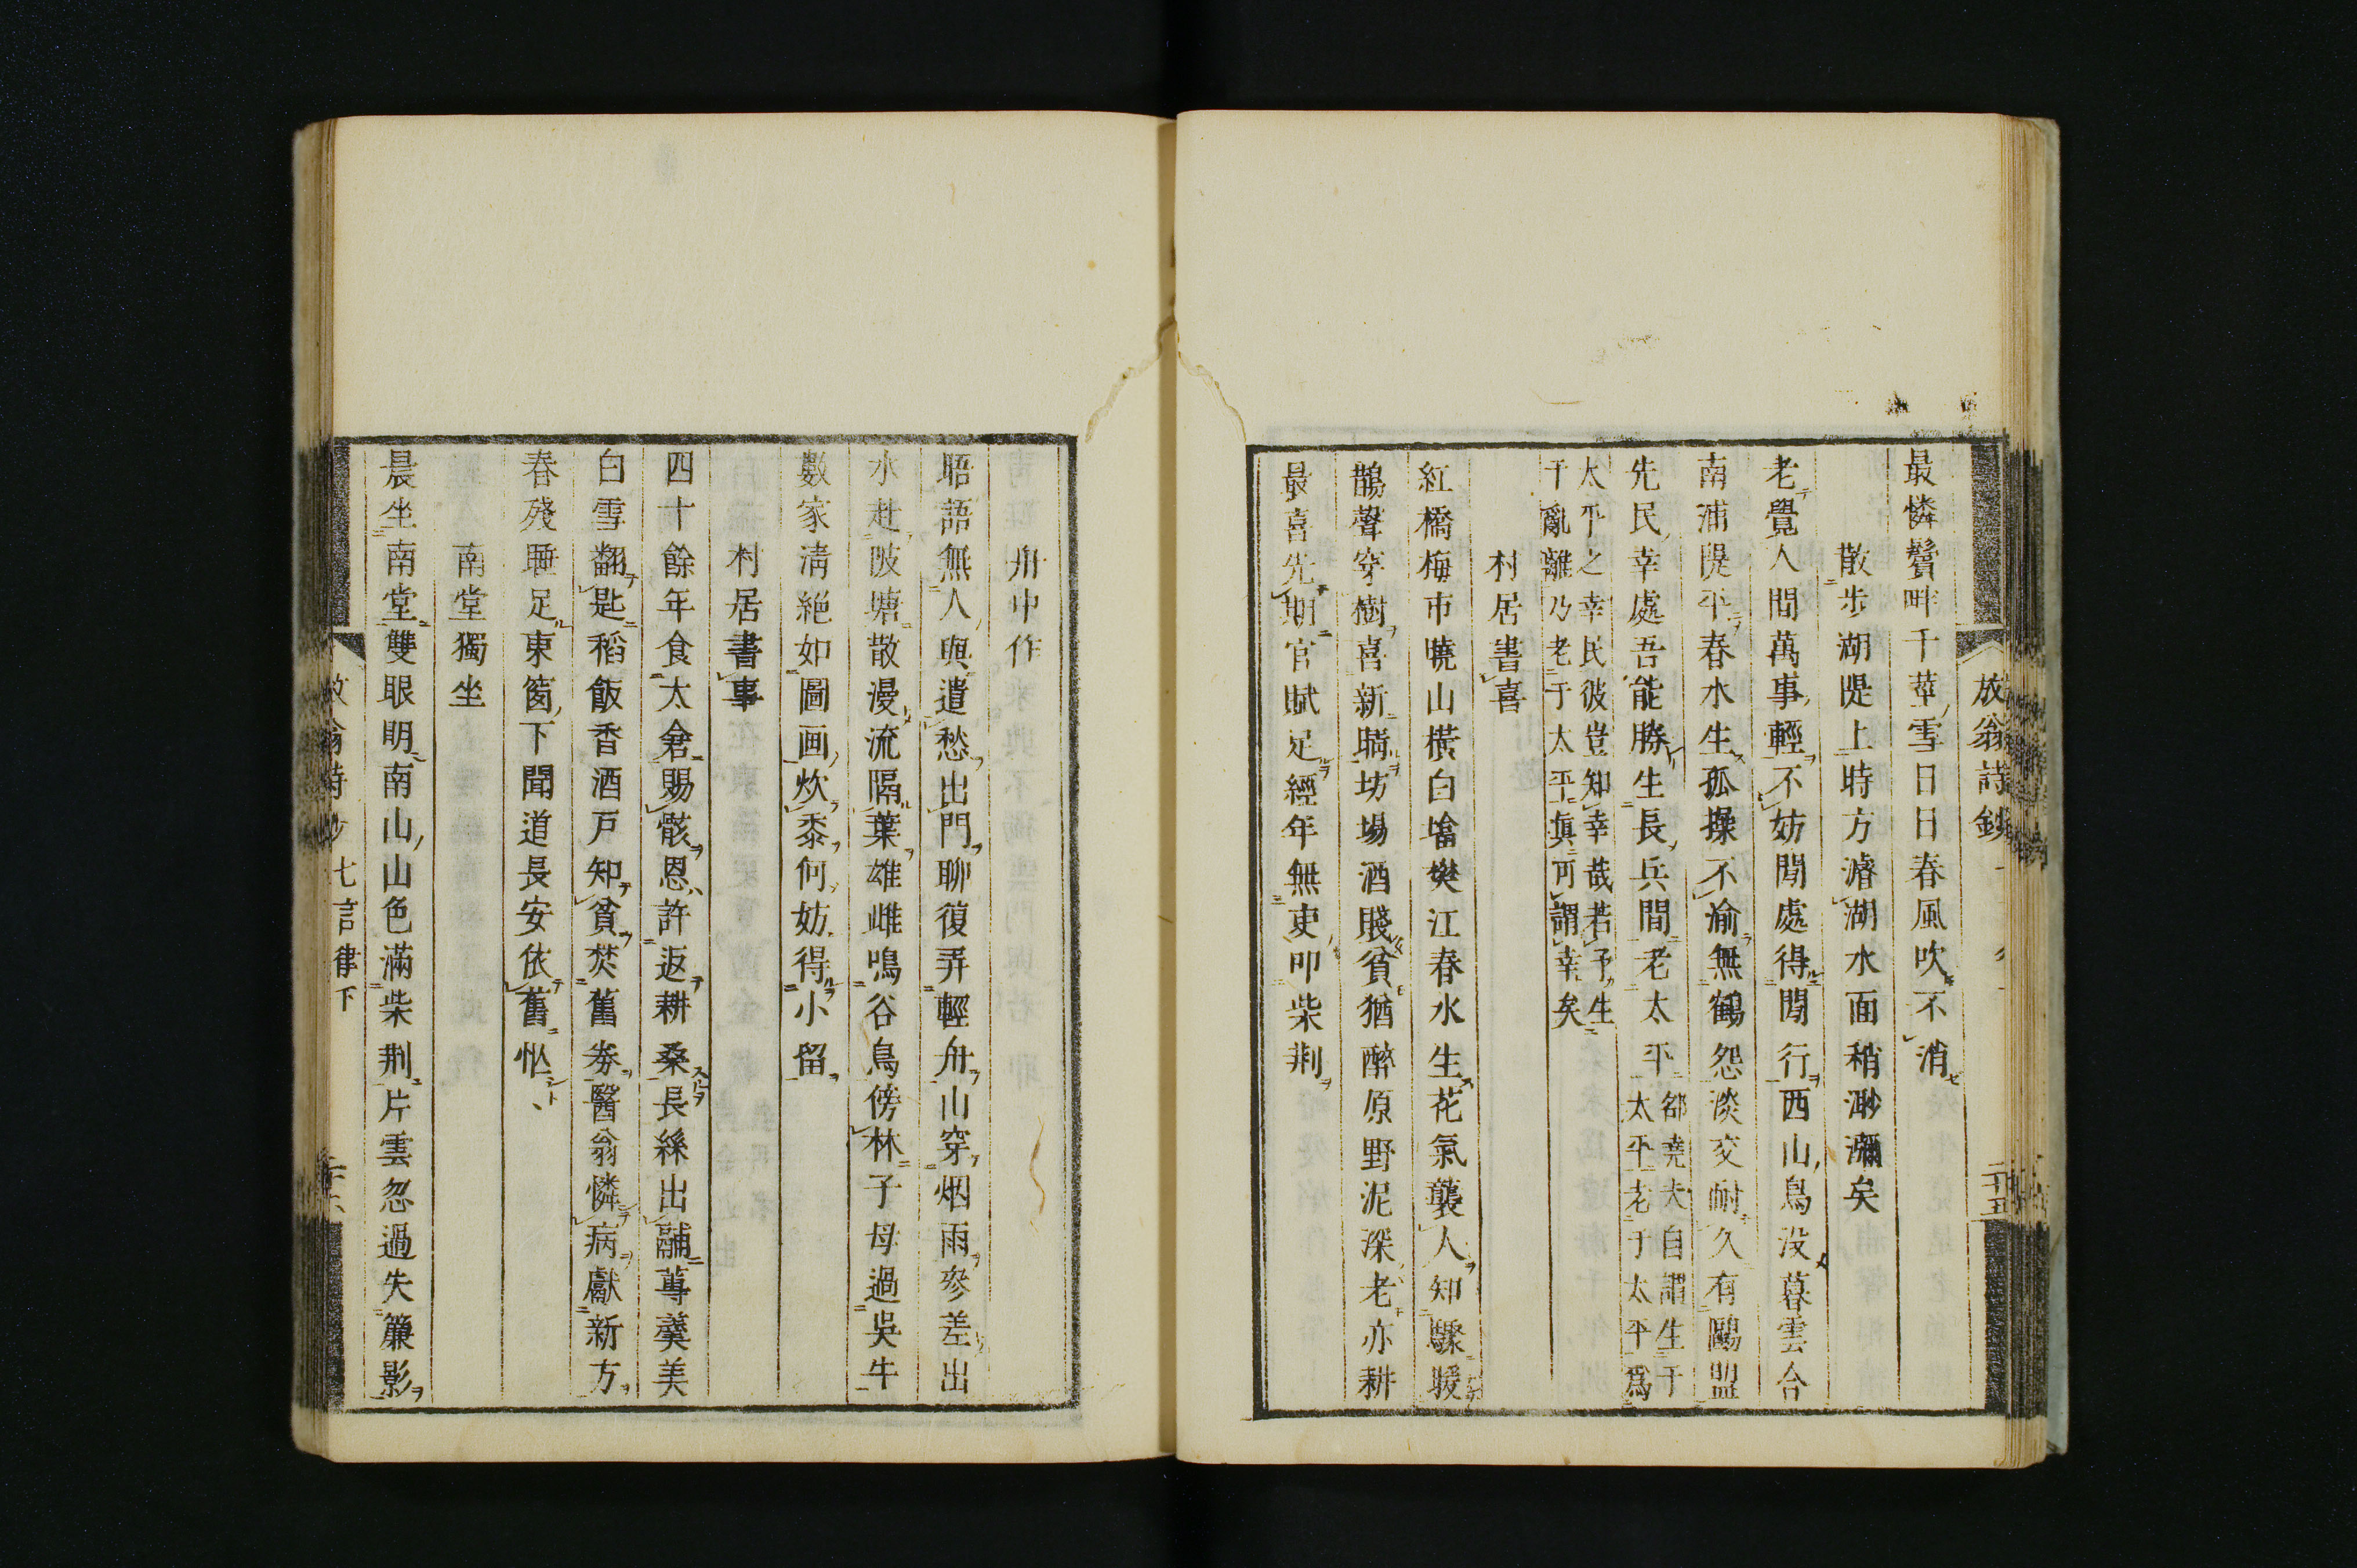 放翁詩鈔
二十五
最憐鬢畔千莖雪日日春風吹不消
散步湖隄上時方濬湖水面稍渺瀰矣
老覺人間萬事輕不妨閒處得閒行西山鳥没暮雲合
南浦隄平春水生孤操不渝無鶴怨淡交耐久有鷗盟
先民幸處吾能勝生長兵間老太平邵堯夫自謂生于
太平老于太平爲
太平之幸民彼豈知幸哉若予生
干亂離乃老于太平眞可謂幸矣
村居書喜
紅橋梅市曉山横白墖樊江春水生花氣襲人知驟暖
鵲聲穿樹喜新晴坊場酒賤貧猶醉原野泥深老亦耕
最喜先期官賦足經年無吏叩柴荆
舟中作
晤語無人與遣愁出門聊復弄輕舟山穿烟雨參差出
水赴陂塘散漫流隔葉雄雌鳴谷鳥傍林子母過吳牛
數家清絶如圖画炊黍何妨得小留
村居書事
四十餘年食太倉賜骸恩許返耕桑長絲出鬴蓴羹美
白雪翻匙稻飯香酒戸知貧焚舊券醫翁憐病獻新方
春殘睡足東窗下聞道長安依舊忙
南堂獨坐
晨坐南堂雙眼明南山山色滿柴荆片雲忽過失簾影
放翁詩鈔 七言律下